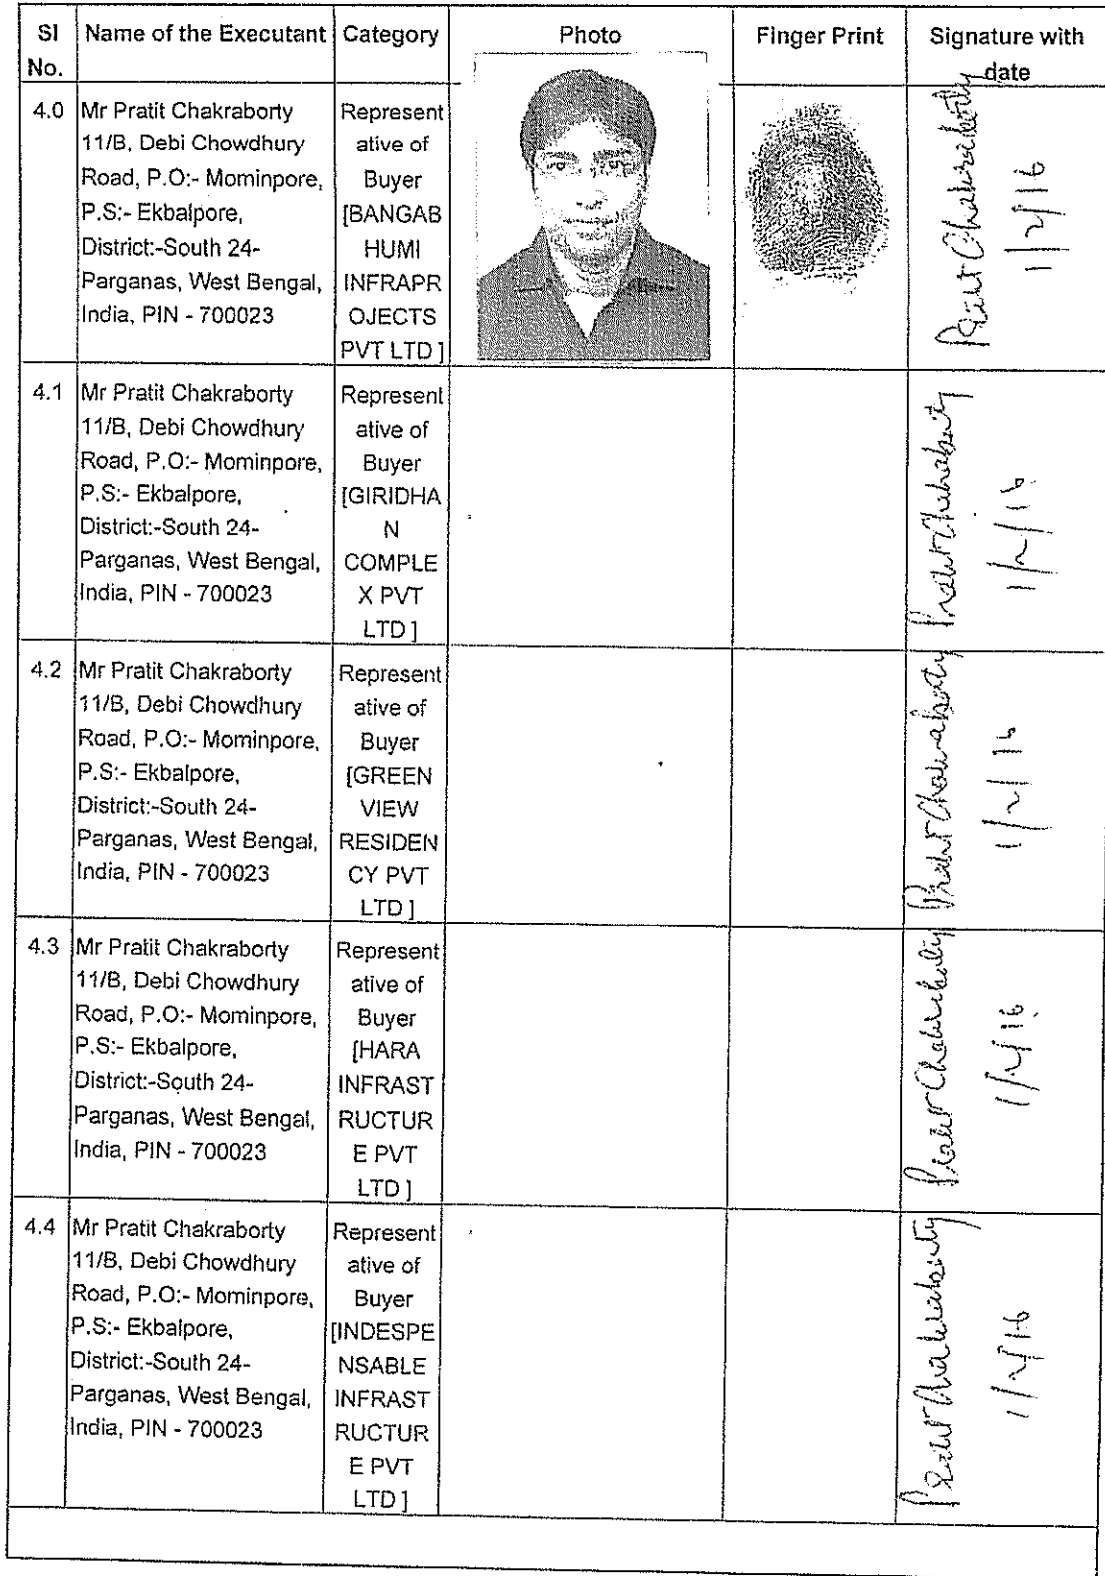 Sl No. Name of the Executant Category Photo Finger Print Signature with date
4.0 Mr Pratit Chakraborty
11/B, Debi Chowdhury
Road, P.O:- Mominpore,
P.S:- Ekbalpore,
District:-South 24-
Parganas, West Bengal,
India, PIN - 700023
Represent
ative of
Buyer
[BANGAB
HUMI
INFRAPR
OJECTS
PVT LTD ]
Pratit Chakraborty
1/2/16
4.1 Mr Pratit Chakraborty
11/B, Debi Chowdhury
Road, P.O:- Mominpore,
P.S:- Ekbalpore,
District:-South 24-
Parganas, West Bengal,
India, PIN - 700023
Represent
ative of
Buyer
[GIRIDHA
N
COMPLE
X PVT
LTD ]
Pratit Chakraborty
1/2/16
4.2 Mr Pratit Chakraborty
11/B, Debi Chowdhury
Road, P.O:- Mominpore,
P.S:- Ekbalpore,
District:-South 24-
Parganas, West Bengal,
India, PIN - 700023
Represent
ative of
Buyer
[GREEN
VIEW
RESIDEN
CY PVT
LTD ]
Pratit Chakraborty
1/2/16
4.3 Mr Pratit Chakraborty
11/B, Debi Chowdhury
Road, P.O:- Mominpore,
P.S:- Ekbalpore,
District:-South 24-
Parganas, West Bengal,
India, PIN - 700023
Represent
ative of
Buyer
[HARA
INFRAST
RUCTUR
E PVT
LTD ]
Pratit Chakraborty
1/2/16
4.4 Mr Pratit Chakraborty
11/B, Debi Chowdhury
Road, P.O:- Mominpore,
P.S:- Ekbalpore,
District:-South 24-
Parganas, West Bengal,
India, PIN - 700023
Represent
ative of
Buyer
[INDESPE
NSABLE
INFRAST
RUCTUR
E PVT
LTD ]
Pratit Chakraborty
1/2/16